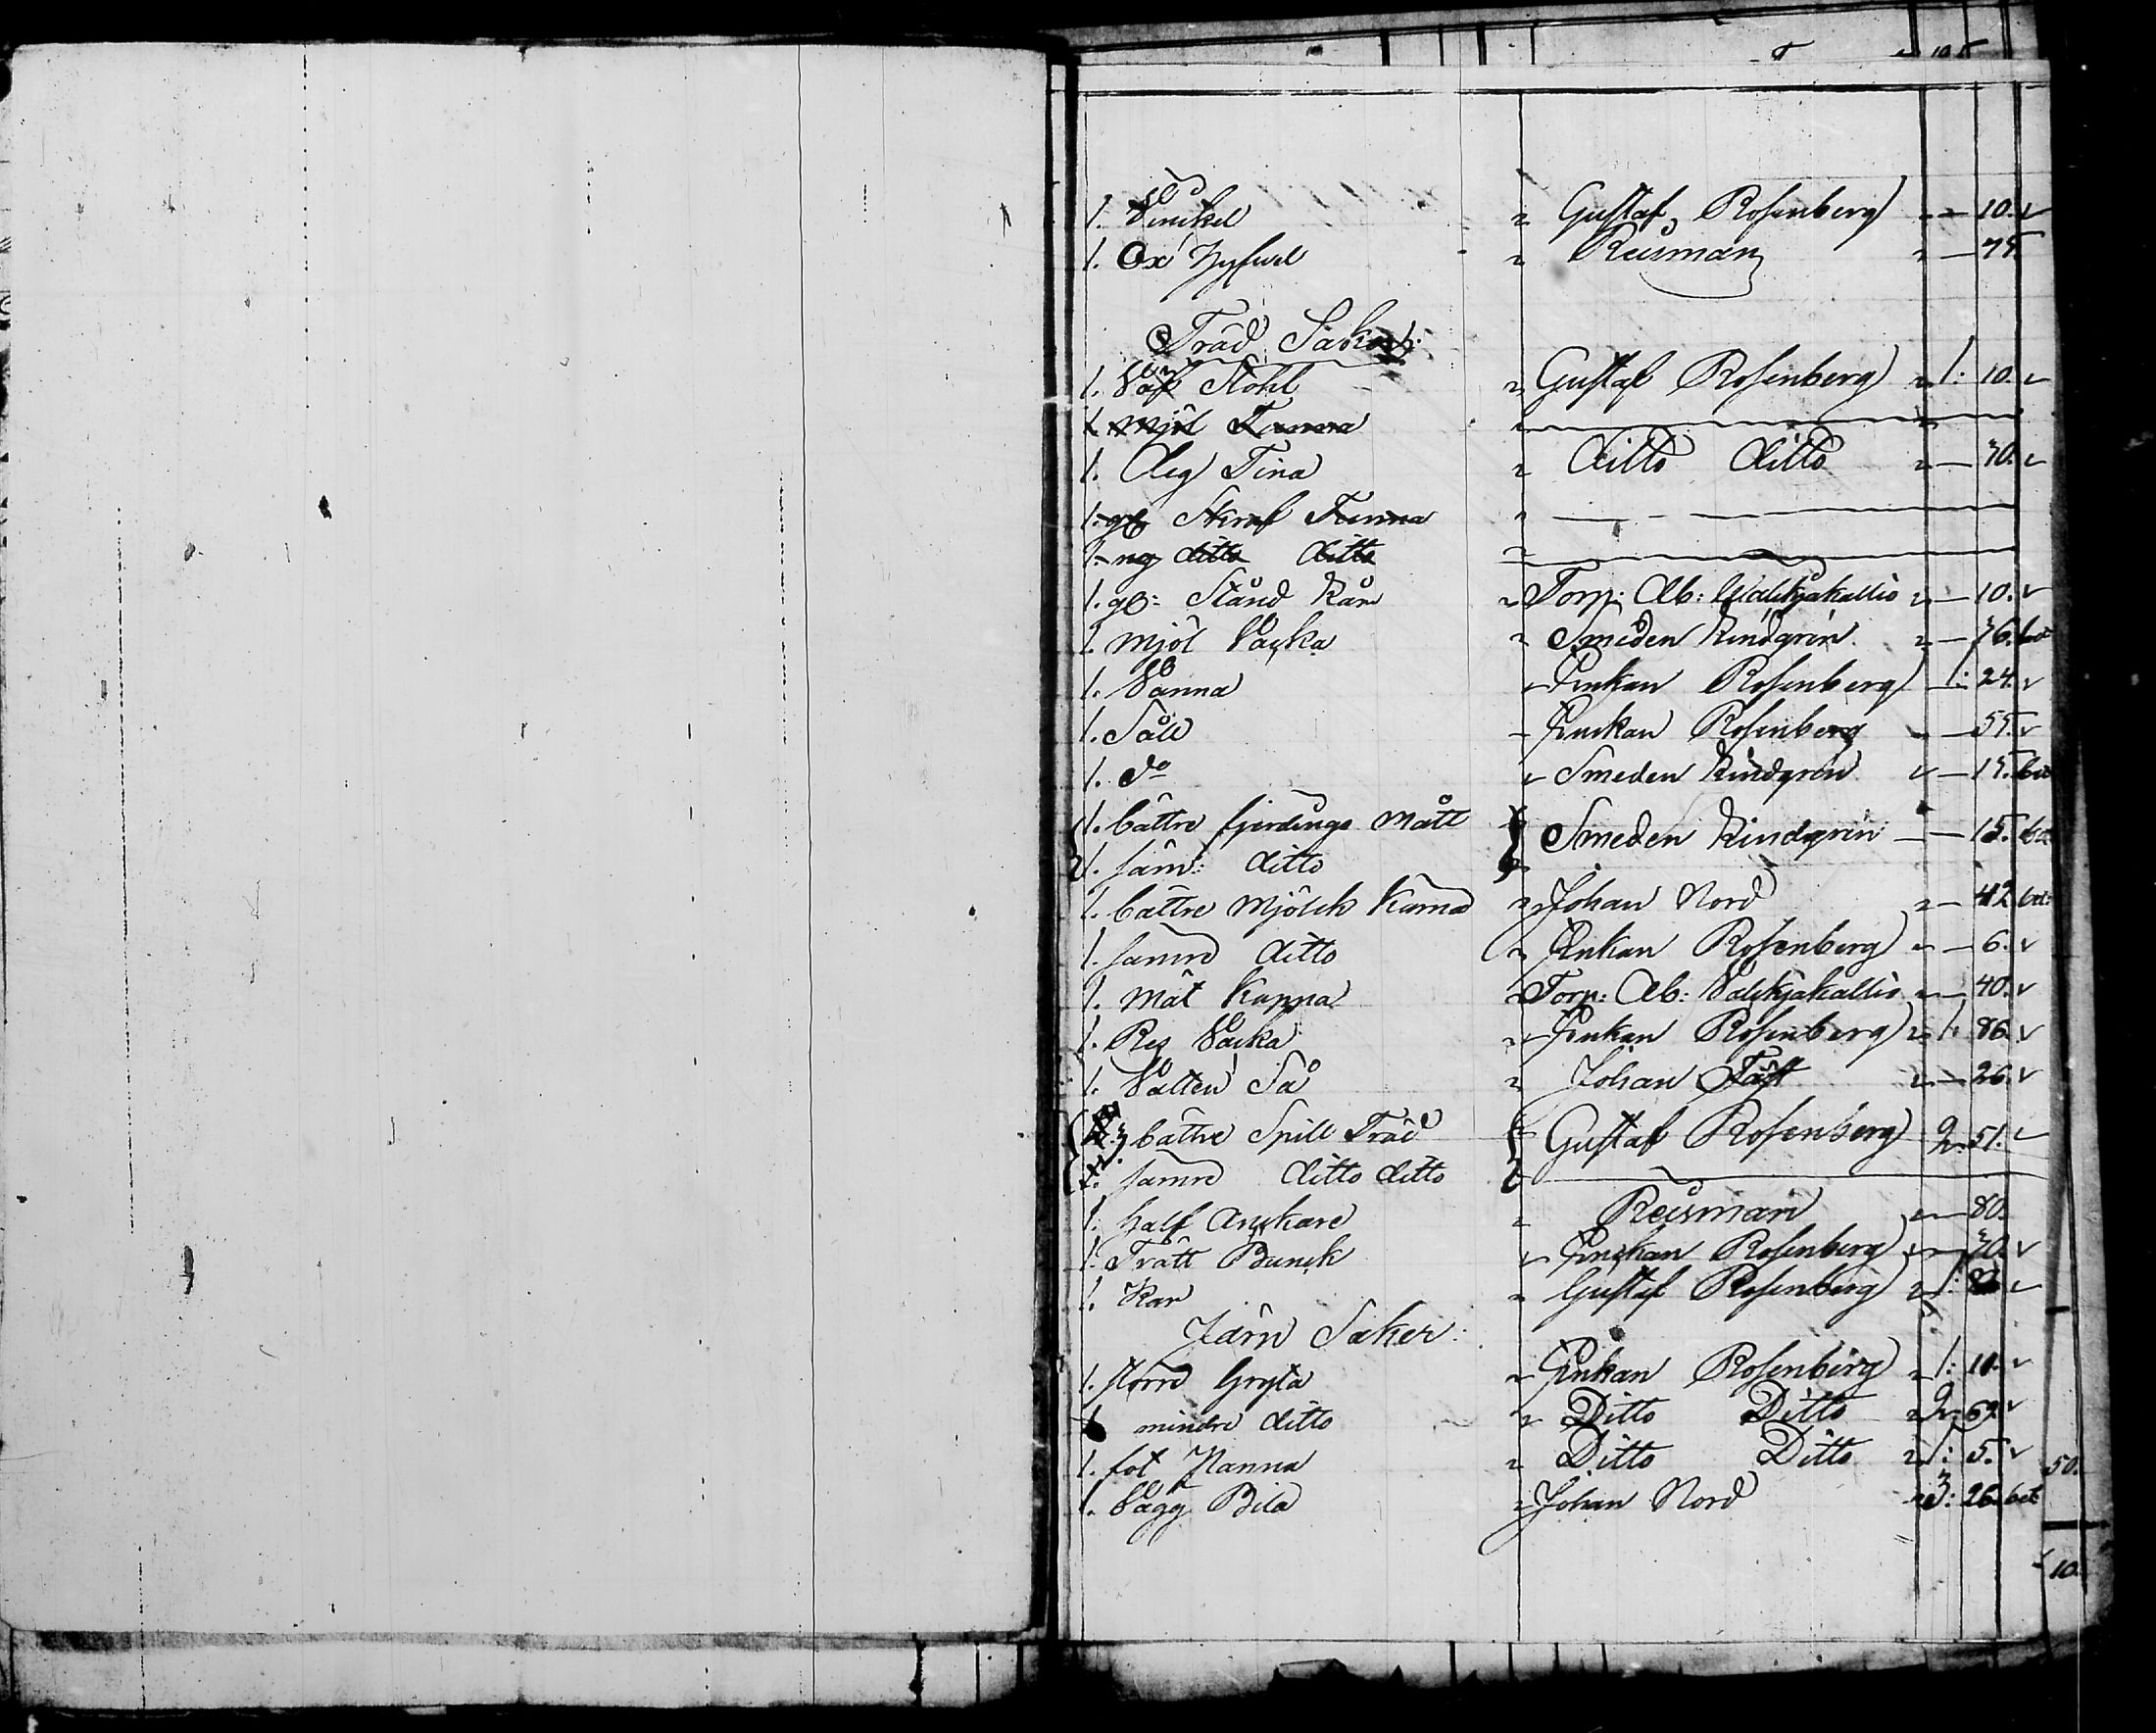 1. Vinckel " Gustaf Rosenberg " — 10. v
1. Ox Hyfvel " Reisman " — 75.
Träd Saker:
1. Väf Stohl " Gustaf Rosenberg " 1: 10. v
1. Mjöl Tunna "
1. Deg Tina " ditto ditto " — 70. v
1. gl Skraf Tunna "
1. ny ditto ditto "
1. gl: Stånd Kar " Torp: Ab: Walckjakallio " — 10. v
1. Mjöl Vacka " Smeden Lindgrén " — 76. bet
1. Vanna " Enkan Rosenberg 1: 24. v
1. Såll " Enckan Rosenberg " — 55. v
1. do " Smeden Lindgrén " — 15. bet
1. bättre fjerdings Mått } Smeden Lindgrén — 15. bet
1. säm: ditto
1. bättre Mjölck Kärna " Johan Nord " — 42. bet:
1. sämre ditto " Enkan Rosenberg " — 6. v
1. Mat Kappa " Torp: Ab: Valckjakallio " — 40. v
1. Res Vacka " Enkan Rosenberg " 1: 86. v
1. Vatten Så " Johan Täft " — 26. v
bättre Spill Träd } Gustaf Rosenberg 2: 51. v
sämre ditto ditto
1. half Anckare " Reisman " — 80.
1. Trått Bänck " Enckan Rosenberg " — 70. v
1. Kar " Gustaf Rosenberg " 1: v
Järn Saker:
1. större Gryta " Enkan Rosenberg " 1: 10. v
1 mindre ditto " Ditto Ditto " 2: 67. v
1. fot Panna " Ditto Ditto " 1: 5. v
50.
1. Vägg Bila " Johan Nord " 3: 26. bet
10.